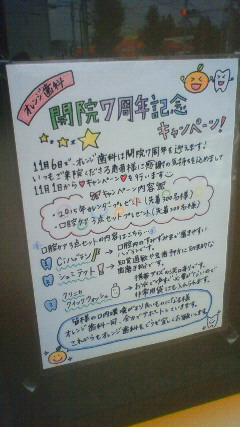 オレンジ歯科
開院7周年記念
キャンペーン!
11月6日で、オレンジ歯科は開院7周年を迎えます!
いつもご来院くださる患者様に感謝の気持ちを込めまして
11月1日から♥キャンペーン♥を行います
キャンペーン内容
カレンダープレゼント(先着500名様)
・口腔ケア3点セットプレゼント(先着500名様)
口腔ケア3点セットの内容はこちら
1
→口腔内のすみずみまで磨きやすい
ハブラシです。
2
→知覚過敏や虫歯予防に効果的な
歯磨き粉です。
3 クリニカ
クイックウォッシュ
→携帯サイズの洗口液です。
お水で薄める必要がないので
非常用袋にも入れられます。
皆様の口内環境がより良いものになる様
オレンジ歯科一同、全力でサポートしていきます。
これからもオレンジ歯科をどうぞ宜しくお願いします。